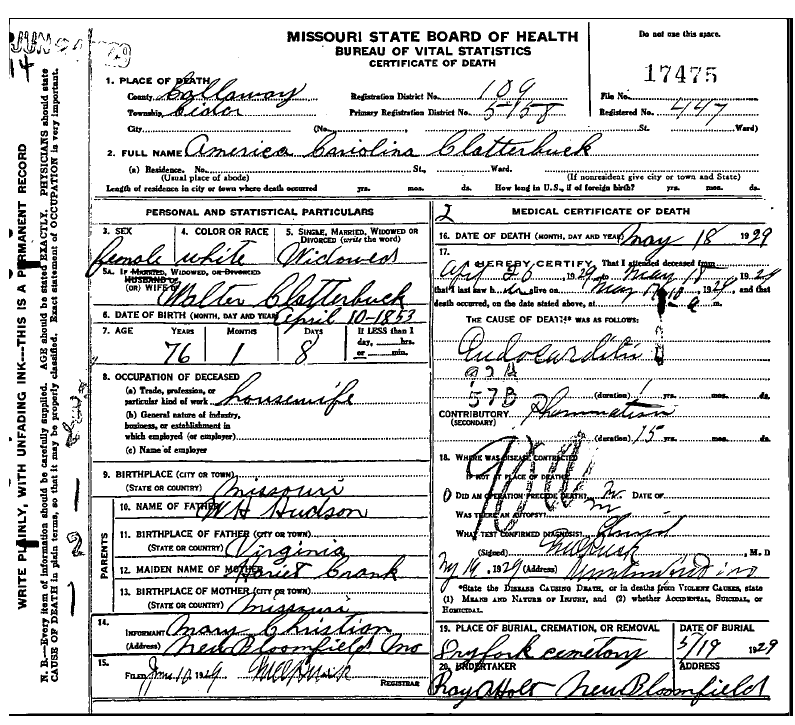 JUN 29
14
MISSOURI STATE BOARD OF HEALTH
BUREAU OF VITAL STATISTICS
CERTIFICATE OF DEATH
Do not use this space.
17475
1. PLACE OF DEATH
County Callaway Registration District No. 109 File No.
Township Cedar Primary Registration District No. 5158 Registered No. 447
City (No. St. Ward)
2. FULL NAME America Carolina Clatterbuck
(a) Residence. No. St., Ward.
(Usual place of abode) (If nonresident give city or town and State)
Length of residence in city or town where death occurred yrs. mos. ds. How long in U.S., if of foreign birth? yrs. mos. ds.
PERSONAL AND STATISTICAL PARTICULARS
3. SEX 4. COLOR OR RACE 5. SINGLE, MARRIED, WIDOWED OR DIVORCED (write the word)
female white Widowed
5A. IF MARRIED, WIDOWED, OR DIVORCED
HUSBAND OF
(OR) WIFE OF Walter Clatterbuck
6. DATE OF BIRTH (MONTH, DAY AND YEAR) April 10-1853
7. AGE YEARS MONTHS DAYS If LESS than 1 day, hrs. or min.
76 1 8
8. OCCUPATION OF DECEASED
(a) Trade, profession, or
particular kind of work housewife
(b) General nature of industry,
business, or establishment in
which employed (or employer)
(c) Name of employer
9. BIRTHPLACE (CITY OR TOWN)
(STATE OR COUNTRY) Missouri
PARENTS
10. NAME OF FATHER W H Hudson
11. BIRTHPLACE OF FATHER (CITY OR TOWN)
(STATE OR COUNTRY) Virginia
12. MAIDEN NAME OF MOTHER Hariet Crank
13. BIRTHPLACE OF MOTHER (CITY OR TOWN)
(STATE OR COUNTRY) Missouri
14.
INFORMANT Mary Christian
(Address) New Bloomfield Mo
15.
FILED June 10 1929
REGISTRAR
2 MEDICAL CERTIFICATE OF DEATH
16. DATE OF DEATH (MONTH, DAY AND YEAR) May 18 1929
17.
I HEREBY CERTIFY, That I attended deceased from
Apr 26, 1929, to May 18, 1929
that I last saw h er alive on May, 1929, and that
death occurred, on the date stated above, at m.
THE CAUSE OF DEATH* WAS AS FOLLOWS:
Endocarditis
92A
57B (duration) 1 yrs. mos. ds.
CONTRIBUTORY Rheumatism
(SECONDARY)
(duration) 15 yrs. mos. ds.
18. WHERE WAS DISEASE CONTRACTED
IF NOT AT PLACE OF DEATH?
0 DID AN OPERATION PRECEDE DEATH? DATE OF
WAS THERE AN AUTOPSY?
WHAT TEST CONFIRMED DIAGNOSIS?
(Signed) , M. D
19, 1929 (Address)
*State the DISEASE CAUSING DEATH, or in deaths from VIOLENT CAUSES, state
(1) MEANS AND NATURE OF INJURY, and (2) whether ACCIDENTAL, SUICIDAL, or
HOMICIDAL.
19. PLACE OF BURIAL, CREMATION, OR REMOVAL DATE OF BURIAL
Dryfork cemetery 5/19 1929
20. UNDERTAKER ADDRESS
Roy A Holt New Bloomfield
WRITE PLAINLY, WITH UNFADING INK---THIS IS A PERMANENT RECORD
N. B.—Every item of information should be carefully supplied. AGE should be stated EXACTLY. PHYSICIANS should state
CAUSE OF DEATH in plain terms, so that it may be properly classified. Exact statement of OCCUPATION is very important.